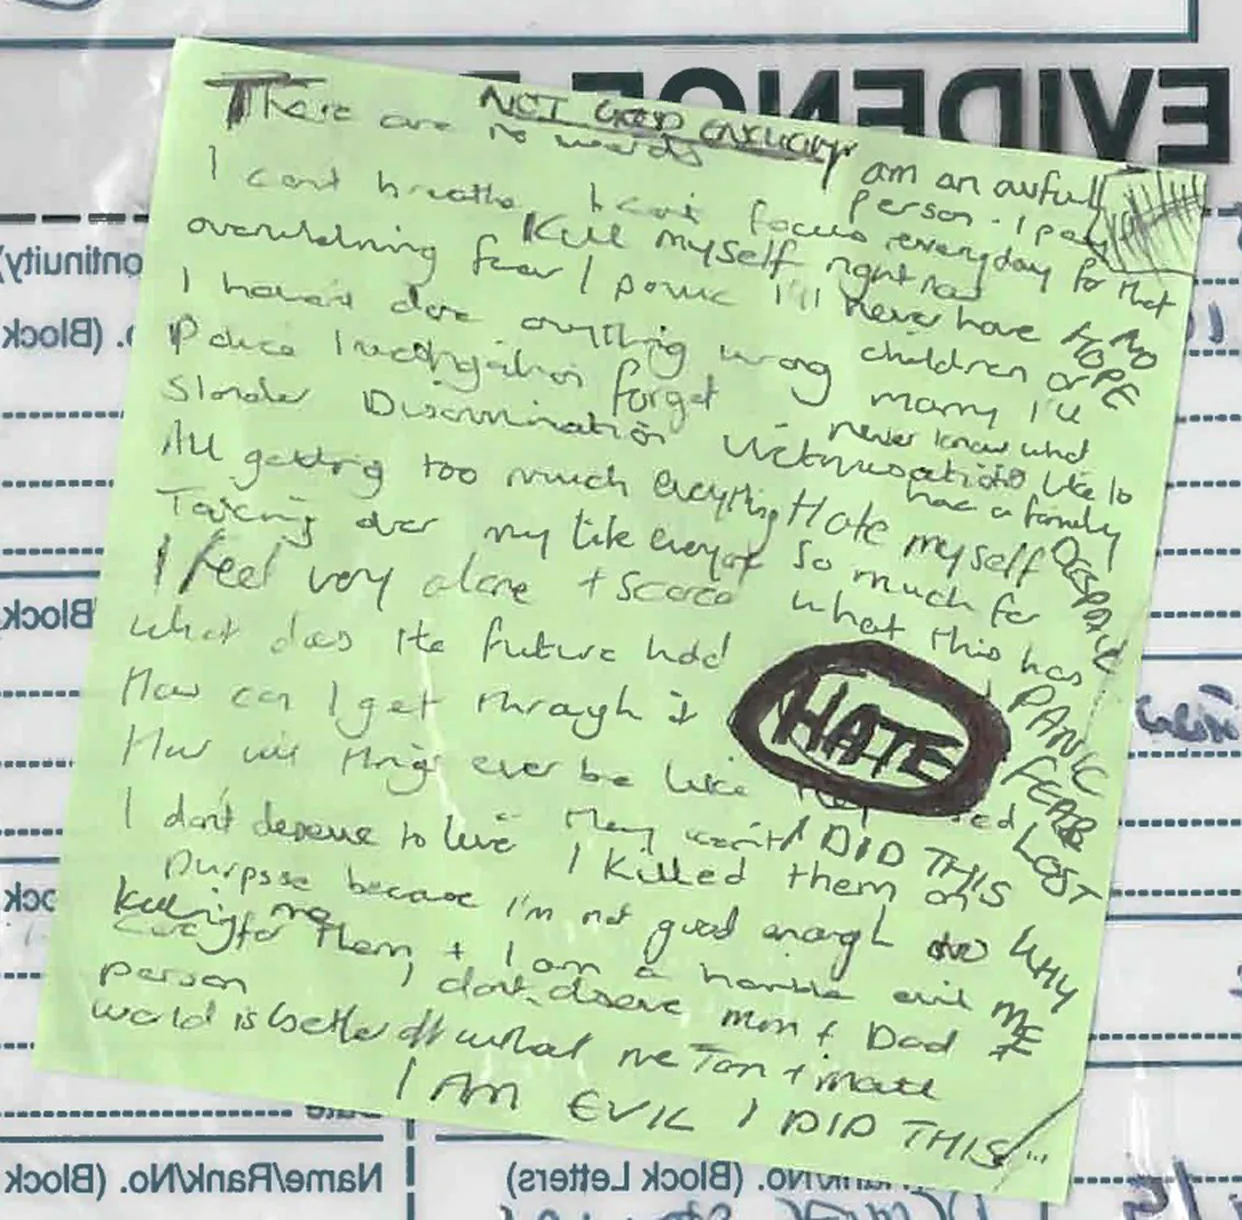 EVIDENCE
NOT GOOD ENOUGH
There are no words
I am an awful
person. I pay
everyday for that
I can't breathe I can't focus
Kill myself right now
overwhelming fear / panic I'll never have
children or
marry I'll
never know what
it's like to
have a family
NO
HOPE
I haven't done anything wrong
Police Investigation forget
Slander Discrimination Victimisation
All getting too much everything
Taking over my life everyone
Hate myself
so much for
what this has
DESPAIR
I feel very alone + scared
what does the future hold
How can I get through it
How will things ever be like they
HATE
PANIC
FEAR
LOST
I don't deserve to live
I DID THIS
I killed them on
purpose because I'm not good enough to
care for them + I am a horrible evil
person
killing me
WHY
ME
I don't deserve mum + Dad
world is better off without me
I AM EVIL I DID THIS
(Block
(Block
(Block
Name/Rank/No. (Block
(Block Letters)